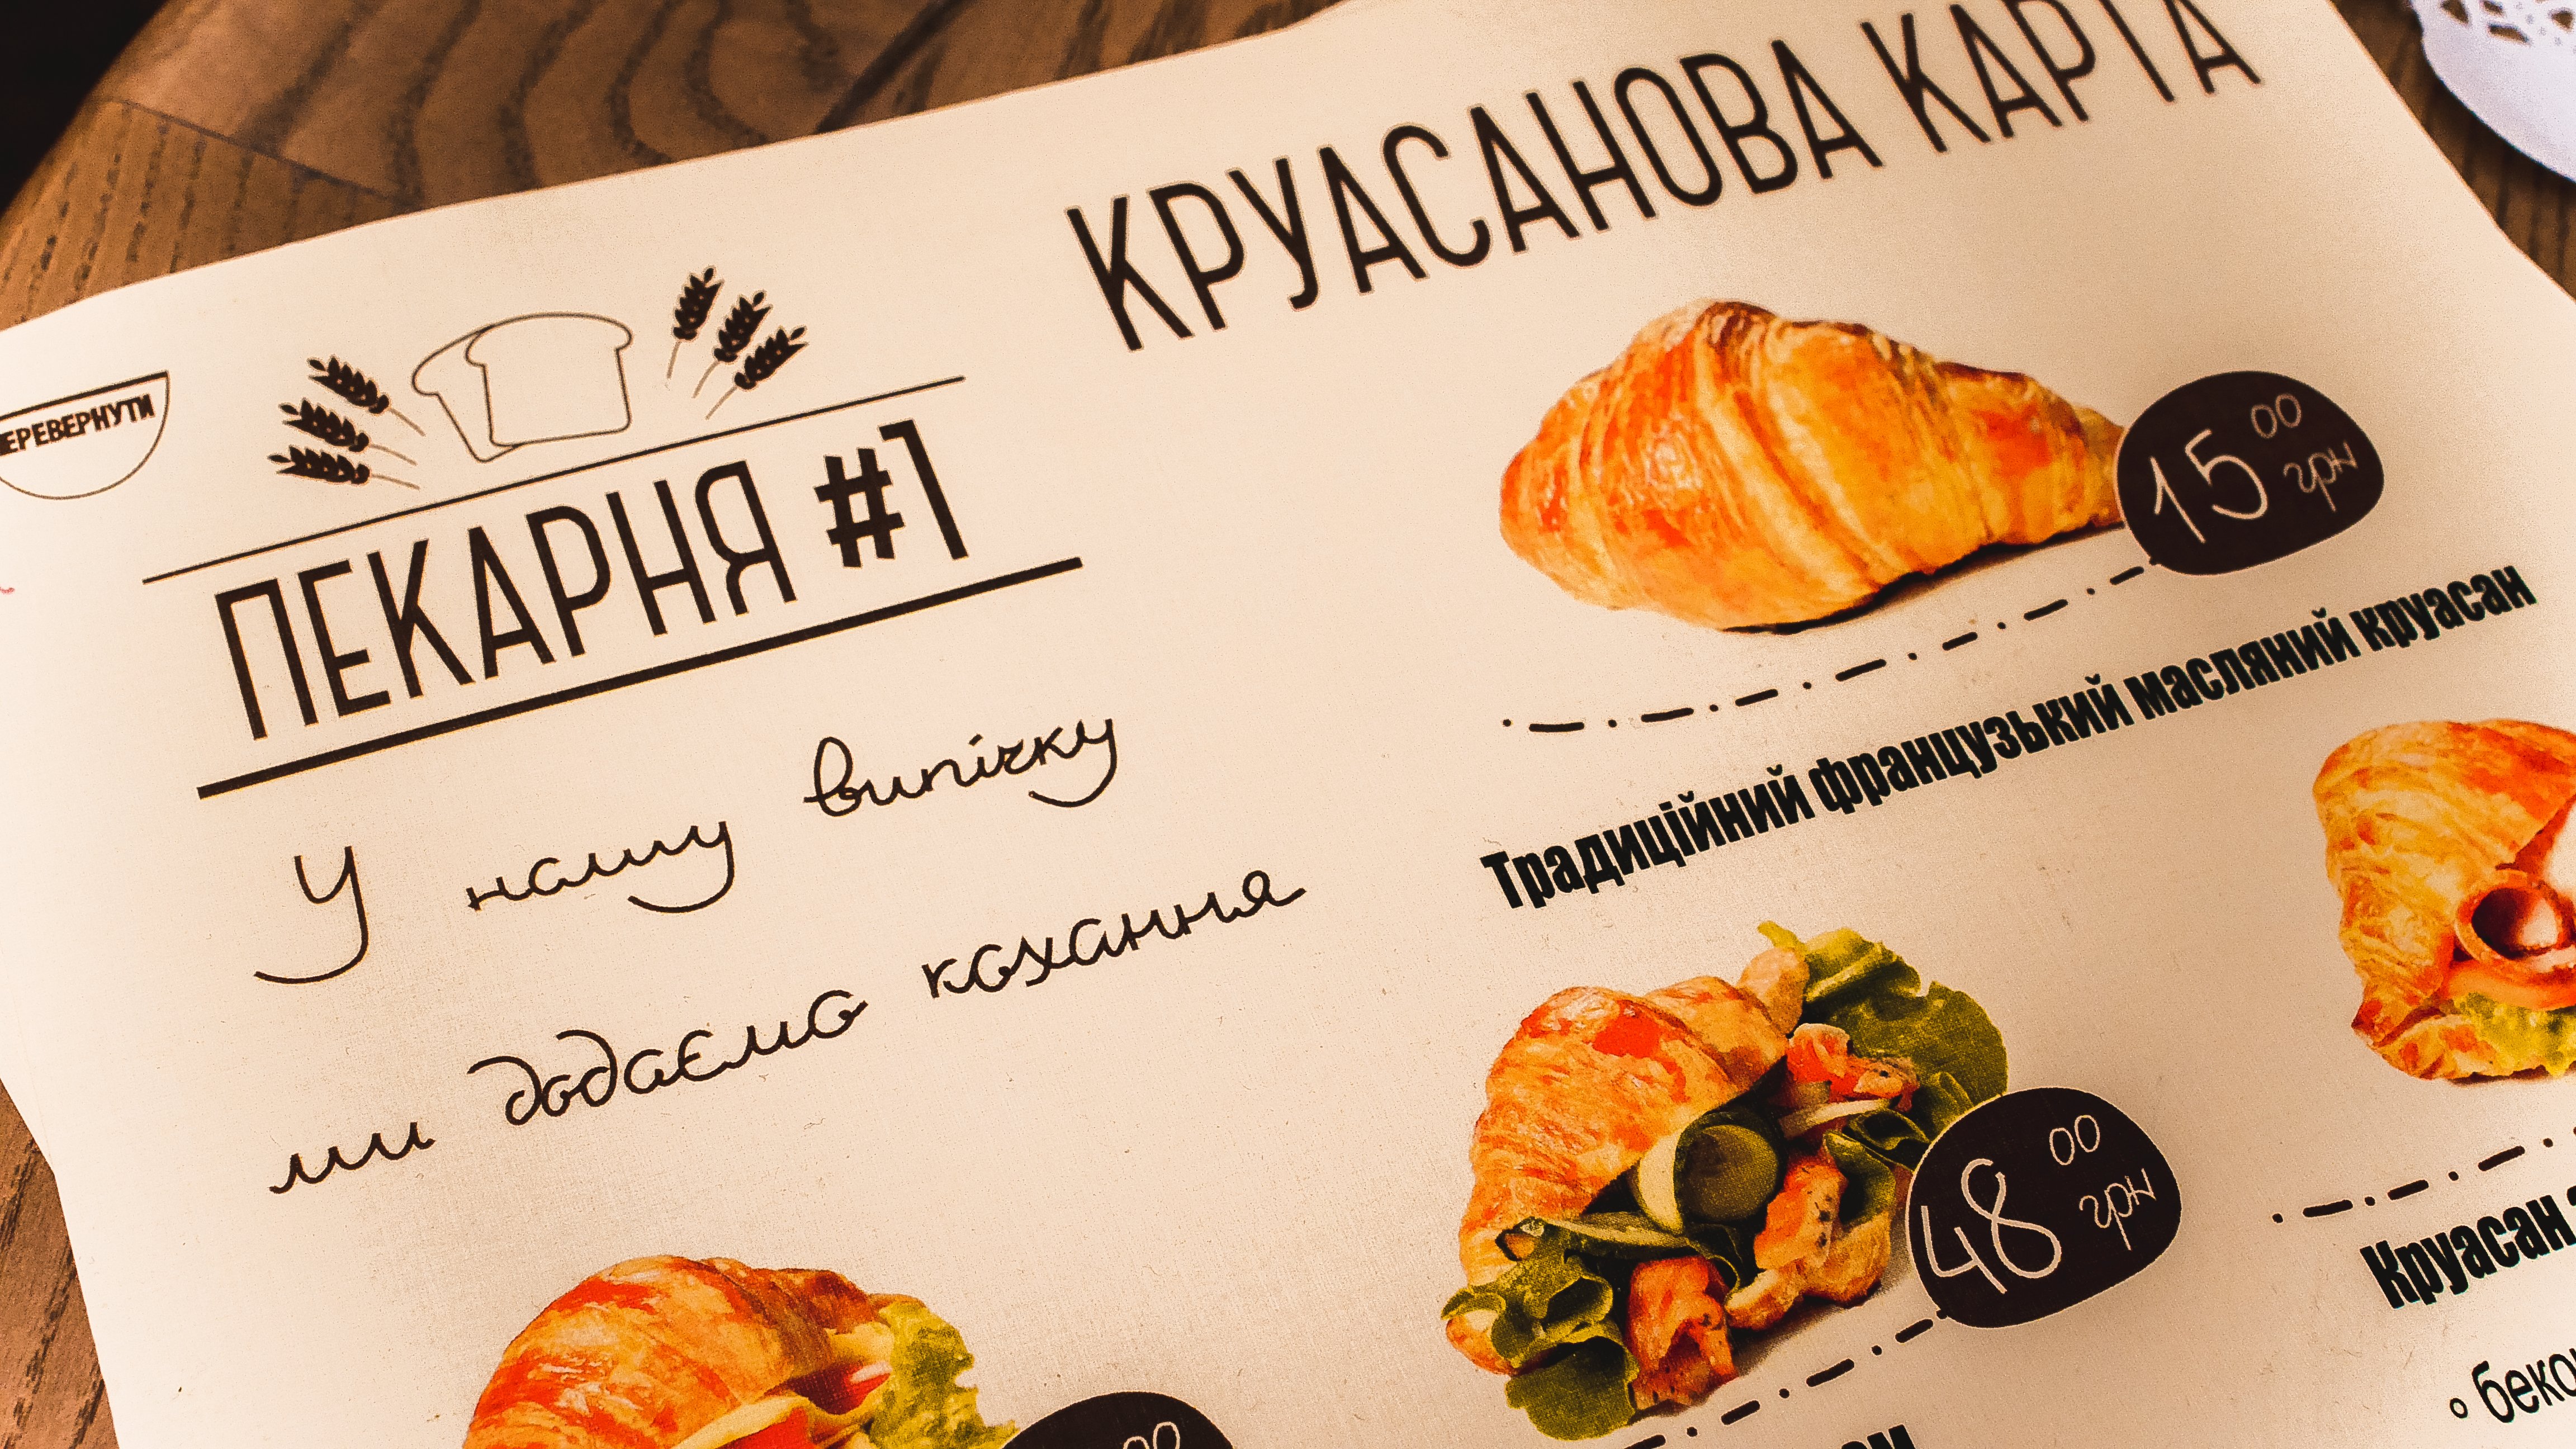 КРУАСАНОВА КАРТА
ПЕРЕВЕРНУТИ
ПЕКАРНЯ #1
У нашу випічку
ми додаємо кохання
15 00 грн
Традиційний французький масляний круасан
48 00 грн
Круасан
00